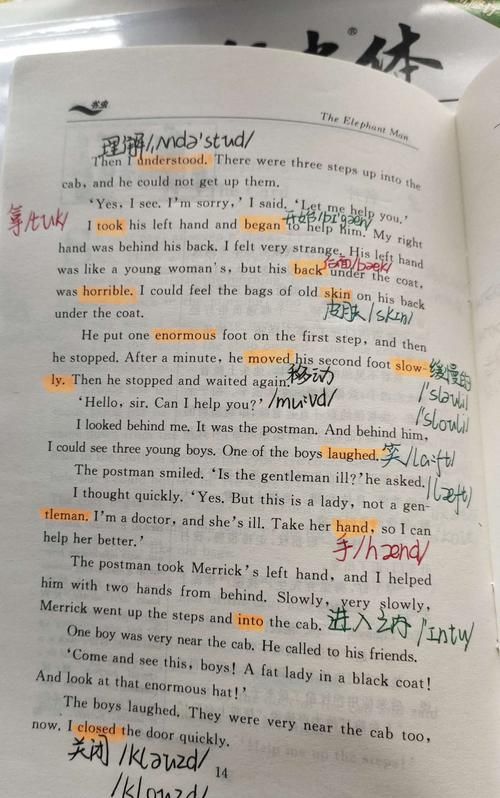 体
书虫
The Elephant Man
理解/ˌʌndə'stud/
Then I understood. There were three steps up into the
cab, and he could not get up them.
'Yes, I see. I'm sorry,' I said. 'Let me help you.'
拿/tuk/
开始/bi'gæn/
I took his left hand and began to help him. My right
hand was behind his back. I felt very strange. His left hand
后面/bæk/
was like a young woman's, but his back under the coat,
was horrible. I could feel the bags of old skin on his back
皮肤/skin/
under the coat.
He put one enormous foot on the first step, and then
he stopped. After a minute, he moved his second foot slow-
缓慢的
ly. Then he stopped and waited again.
移动
/'sləuli/
'Hello, sir. Can I help you?'
/mu:vd/
/'slouli/
I looked behind me. It was the postman. And behind him,
I could see three young boys. One of the boys laughed.
笑/la:ft/
The postman smiled. 'Is the gentleman ill?' he asked.
/læft/
I thought quickly. 'Yes. But this is a lady, not a gen-
tleman. I'm a doctor, and she's ill. Take her hand, so I can
help her better.'
手/hænd/
The postman took Merrick's left hand, and I helped
him with two hands from behind. Slowly, very slowly,
Merrick went up the steps and into the cab.
进入之内/'intu/
One boy was very near the cab. He called to his friends.
'Come and see this, boys! A fat lady in a black coat!
And look at that enormous hat!'
The boys laughed. They were very near the cab too,
now. I closed the door quickly.
关闭/kləuzd/
14
/klouzd/